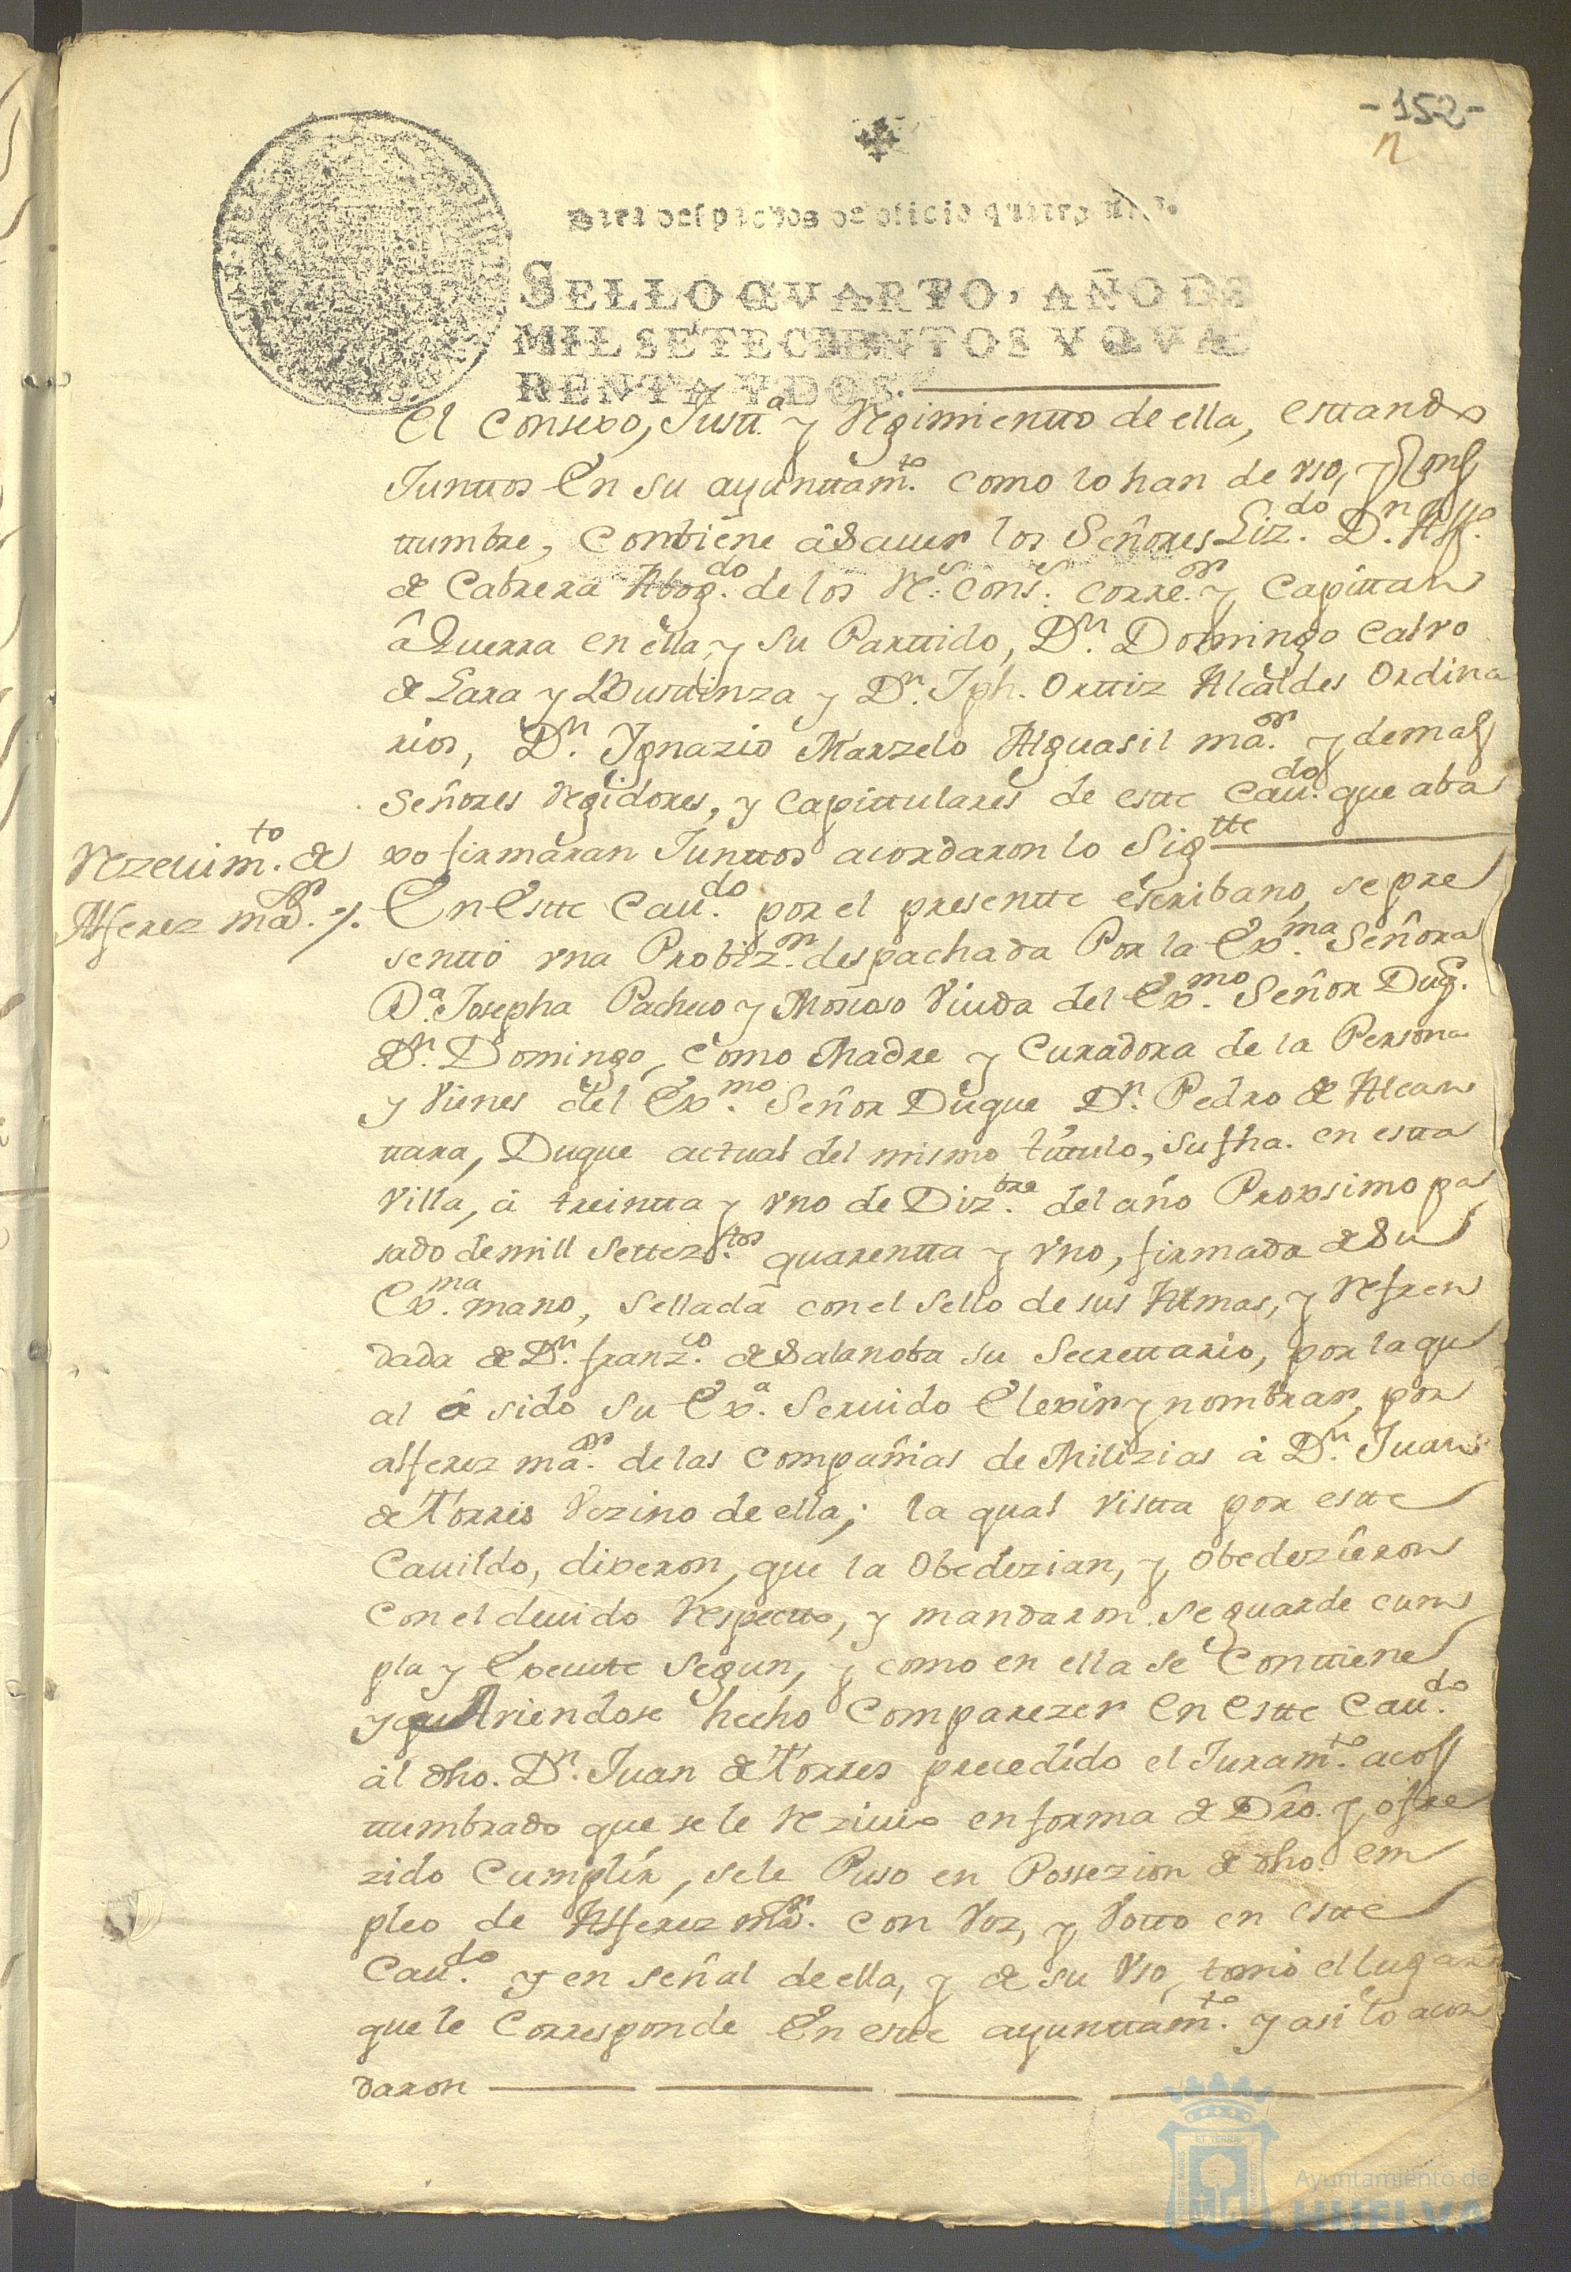 -152-
n
Para despachos de oficio quatro mrs.
SELLO QVARTO, AÑO DE
MIL SETECIENTOS Y QVA
RENTA Y DOS.
El Consexo, Justt.ª y Regimientto de ella, esttando
Junttos En su ayunttam.to como lo han de vso, y Cons
ttumbre, Combiene â Sauer los Señores Liz.do D.n
de Cabrera Abog.do de los R.s Cons.s Corre.or y Capittan
â Guerra en ella, y su Parttido, D.n Domingo Calvo
de Lara y Busttinza y D.n Jph. Orttiz Alcaldes Ordina
rios, D.n Ygnazio Marzelo Alguasil ma.or y demas
Señores Regidores, y Capittulares de estte Cau.do que aba
xo firmaran Junttos acordaron lo Sigtte
Rezeuim.to de
Alferez ma.or /.
En Estte Cau.do por el presentte escribano, se pre
senttó vna Probiz.on despachada Por la Ex.ma Señora
D.ª Josepha Pacheco y Moscoso Viuda del Ex.mo Señor Duq.e
D.n Domingo, como Madre y Curadora de la Persona
y Vienes del Ex.mo Señor Duque D.n Pedro de Alcan
ttara, Duque actual del mismo títtulo, su fha. en estta
Villa, â treintta y vno de Diz.bre del año Proxsimo pa
sado de mill Settez.tos quarentta y vno, firmada de Su
Ex.ma mano, Sellada con el Sello de sus Armas, y Refren
dada de D.n franz.co de Salanoba su Secrettario, por la qu
al â sido Su Ex.ª Seruido Elexir y nombrar, por
alferez ma.or de las Compañias de Milizias â D.n Juan
de Torres Vezino de ella; la qual vistta por estte
Cauildo, dixeron, que la Obedezian, y obedezieron
Con el deuido Respectto, y mandaron se guarde cum
pla y Execute Segun, y como en ella se Conttiene
y Auiendose hecho Comparezer En Estte Cau.do
âl dho. D.n Juan de Torres precedido el Juram.to acos
ttumbrado que se le Reziuio en forma de Dro. y ofre
zido Cumplir, sele Puso en Possezion de dho. em
pleo de Alferez ma.or con Voz, y Votto en estte
Cau.do y en señal de ella, y de su Vso, tomó el lugar
que le Corresponde En estte ayunttam.to y asi lo acor
daron
Ayuntamiento de
HUELVA